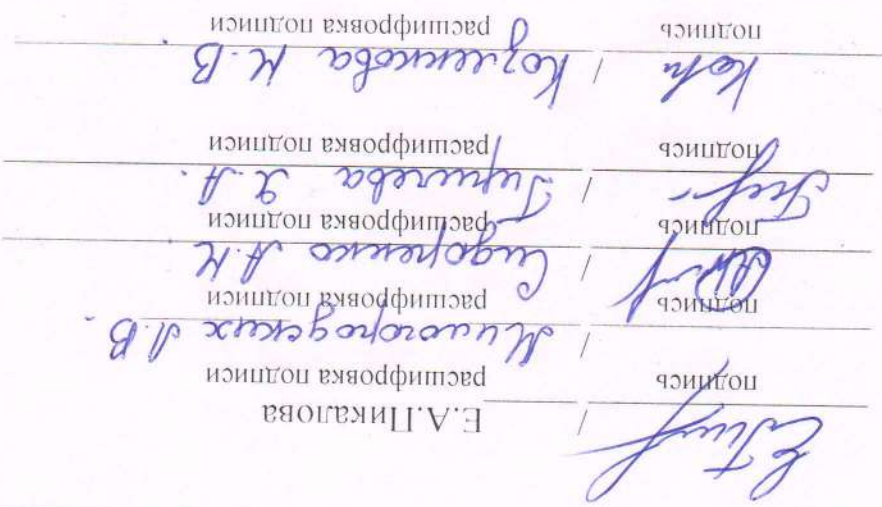 / Е.А.Пикалова
подпись расшифровка подписи
/ Миногородских Л.В.
подпись расшифровка подписи
/ Сидоренко А.Н
подпись расшифровка подписи
/ Л.А.
подпись расшифровка подписи
/ Козленкова Н.В.
подпись расшифровка подписи